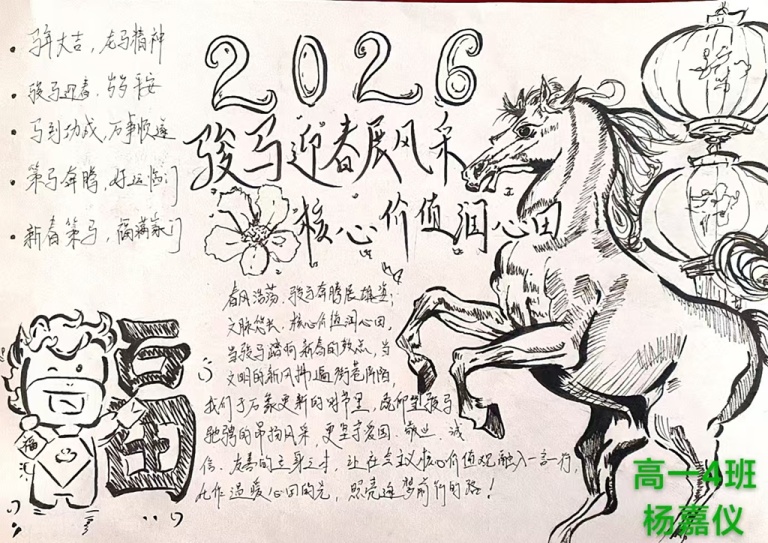 马年大吉，龙马精神
骏马迎春，岁岁平安
马到功成，万事顺遂
策马奔腾，好运临门
新春策马，福满家门
2026
骏马迎春展风采
核心价值润心田
春风浩荡，骏马奔腾展雄姿；
文脉悠长，核心价值润心田。
当骏马踏响新春的鼓点，当
文明的新风拂遍街巷阡陌，
我们于万象更新的时节里，既仰望骏马
驰骋的昂扬风采，更坚守爱国、敬业、诚
信、友善的立身之本，让社会主义核心价值观融入一言一行，
化作温暖心田的光，照亮逐梦前行的路！
福
福
高一4班
杨嘉仪